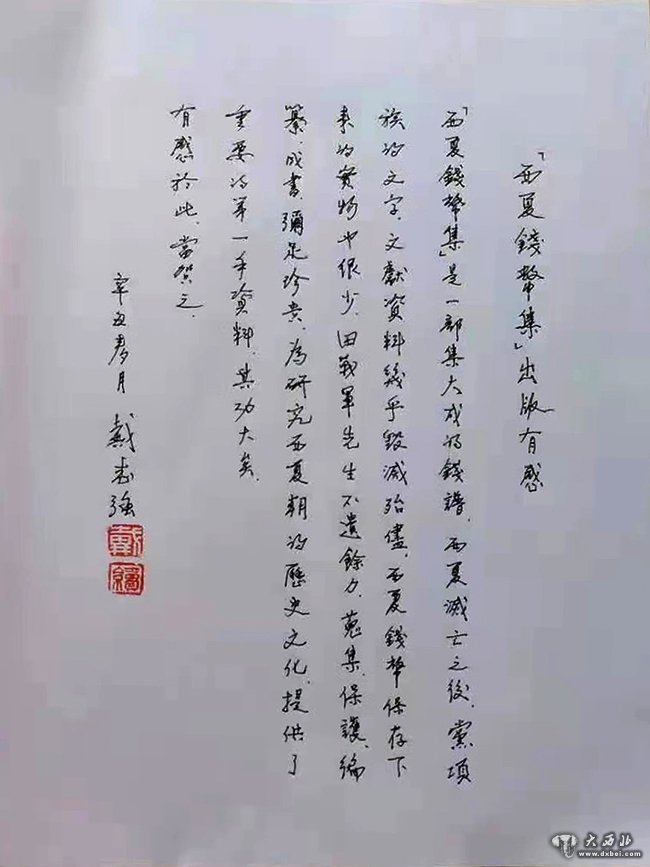 「西夏錢幣集」出版有感
「西夏錢幣集」是一部集大成的錢譜．西夏滅亡之後．党項
族的文字．文獻資料幾乎毀滅殆儘．西夏錢幣保存下
來的實物也很少．田战軍先生不遺餘力．蒐集．保護．编
纂．成書．彌足珍貴．為研究西夏朝的歷史文化．提供了
重要的第一手資料．其功大矣．
有感於此．當賀之．
辛丑春月 戴志强
大西北
www.dxbei.com